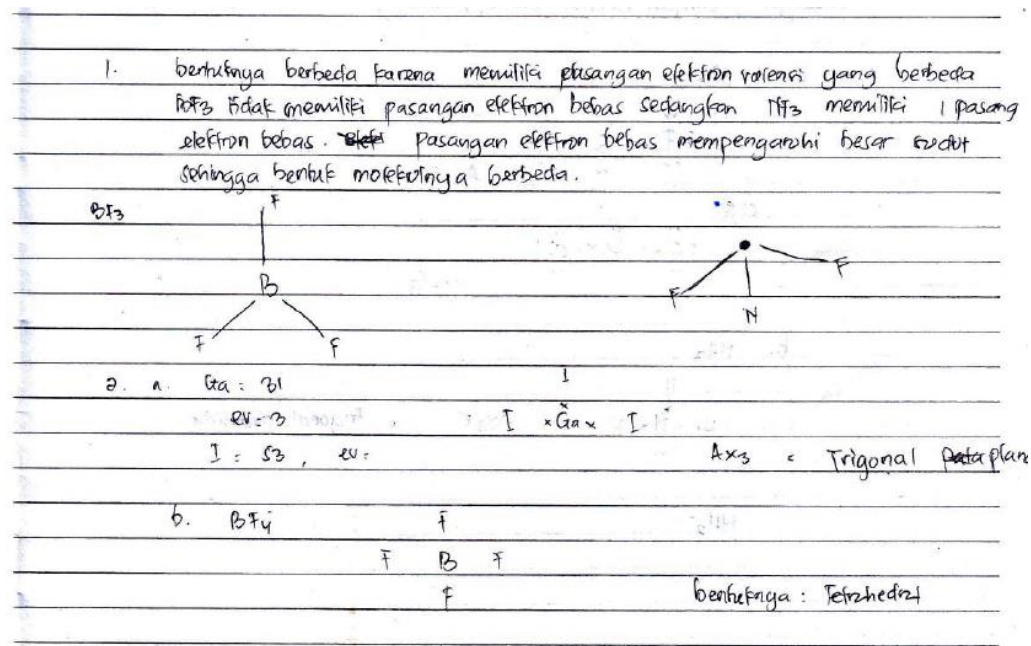 1. bentuknya berbeda karena memiliki pasangan elektron valensi yang berbeda
BF3 tidak memiliki pasangan elektron bebas sedangkan NF3 memiliki 1 pasang
elektron bebas. Pasangan elektron bebas mempengaruhi besar sudut
sehingga bentuk molekulnya berbeda.
BF3
F
B
F F
F F
N
2. a. Ga : 31
I
ev = 3
I Ga I
I : 53, ev =
AX3 = Trigonal plan
b. BF4
F
F B F
F
bentuknya : Tetrahedral